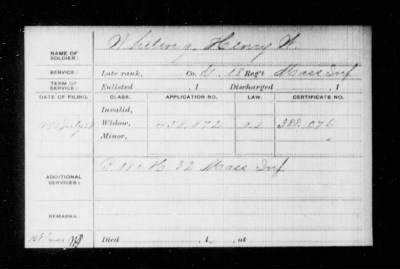 NAME OF SOLDIER: Whiting, Henry W.
SERVICE: Late rank, Co. 18 Reg't Mass Inf
TERM OF SERVICE: Enlisted , 1 Discharged , 1
DATE OF FILING. CLASS. APPLICATION NO. LAW. CERTIFICATE NO.
Invalid,
Widow, 458.672 388.076
Minor,
ADDITIONAL SERVICES: H. 32 Mass Inf
REMARKS:
Died , 1 , at